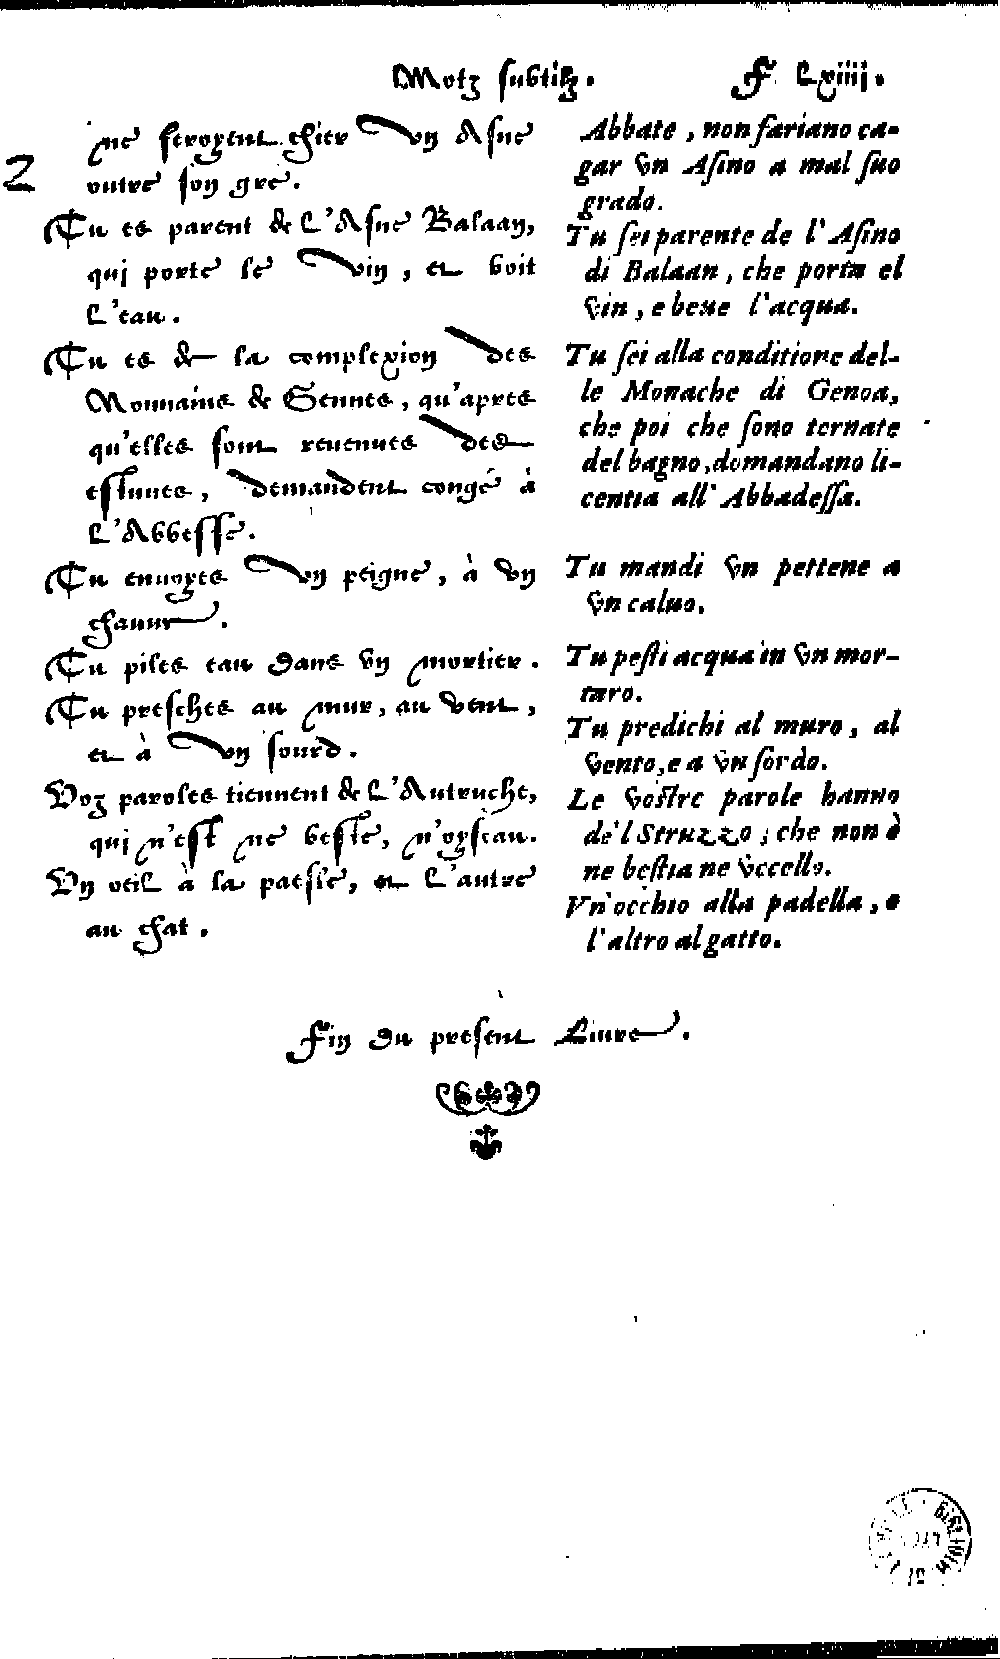 Motz subtilz. F. Lxiiij.
2
ne feroyent chier vn Asne
outre son gre.
Tu es parent de L'Asne Balaan,
qui porte le vin, et boit
L'eau.
Tu es de la complexion des
Monnains de Gennes, qu'apres
qu'elles sont reuenues des
estuues, demandent congé à
L'Abbesse.
Tu enuoyes vn peigne, à vn
chauue.
Tu piles eau dans vn mortier.
Tu presches au mur, au vent,
et à vn sourd.
Voz paroles tiennent de L'Autruche,
qui n'est ne beste, n'oyseau.
Vn oeil à la paesle, et L'autre
au chat.
Abbate, non fariano ca-
gar vn Asino a mal suo
grado.
Tu sei parente de l'Asino
di Balaan, che porta el
vin, e beue l'acqua.
Tu sei alla conditione del-
le Monache di Genoa,
che poi che sono tornate
del bagno, domandano li-
centia all'Abbadessa.
Tu mandi vn pettene a
vn caluo.
Tu pesti acqua in vn mor-
taro.
Tu predichi al muro, al
vento, e a vn sordo.
Le vostre parole hanno
de'l Struzzo, che non è
ne bestia ne vccello.
Vn'occhio alla padella, e
l'altro al gatto.
Fin du present Liure.